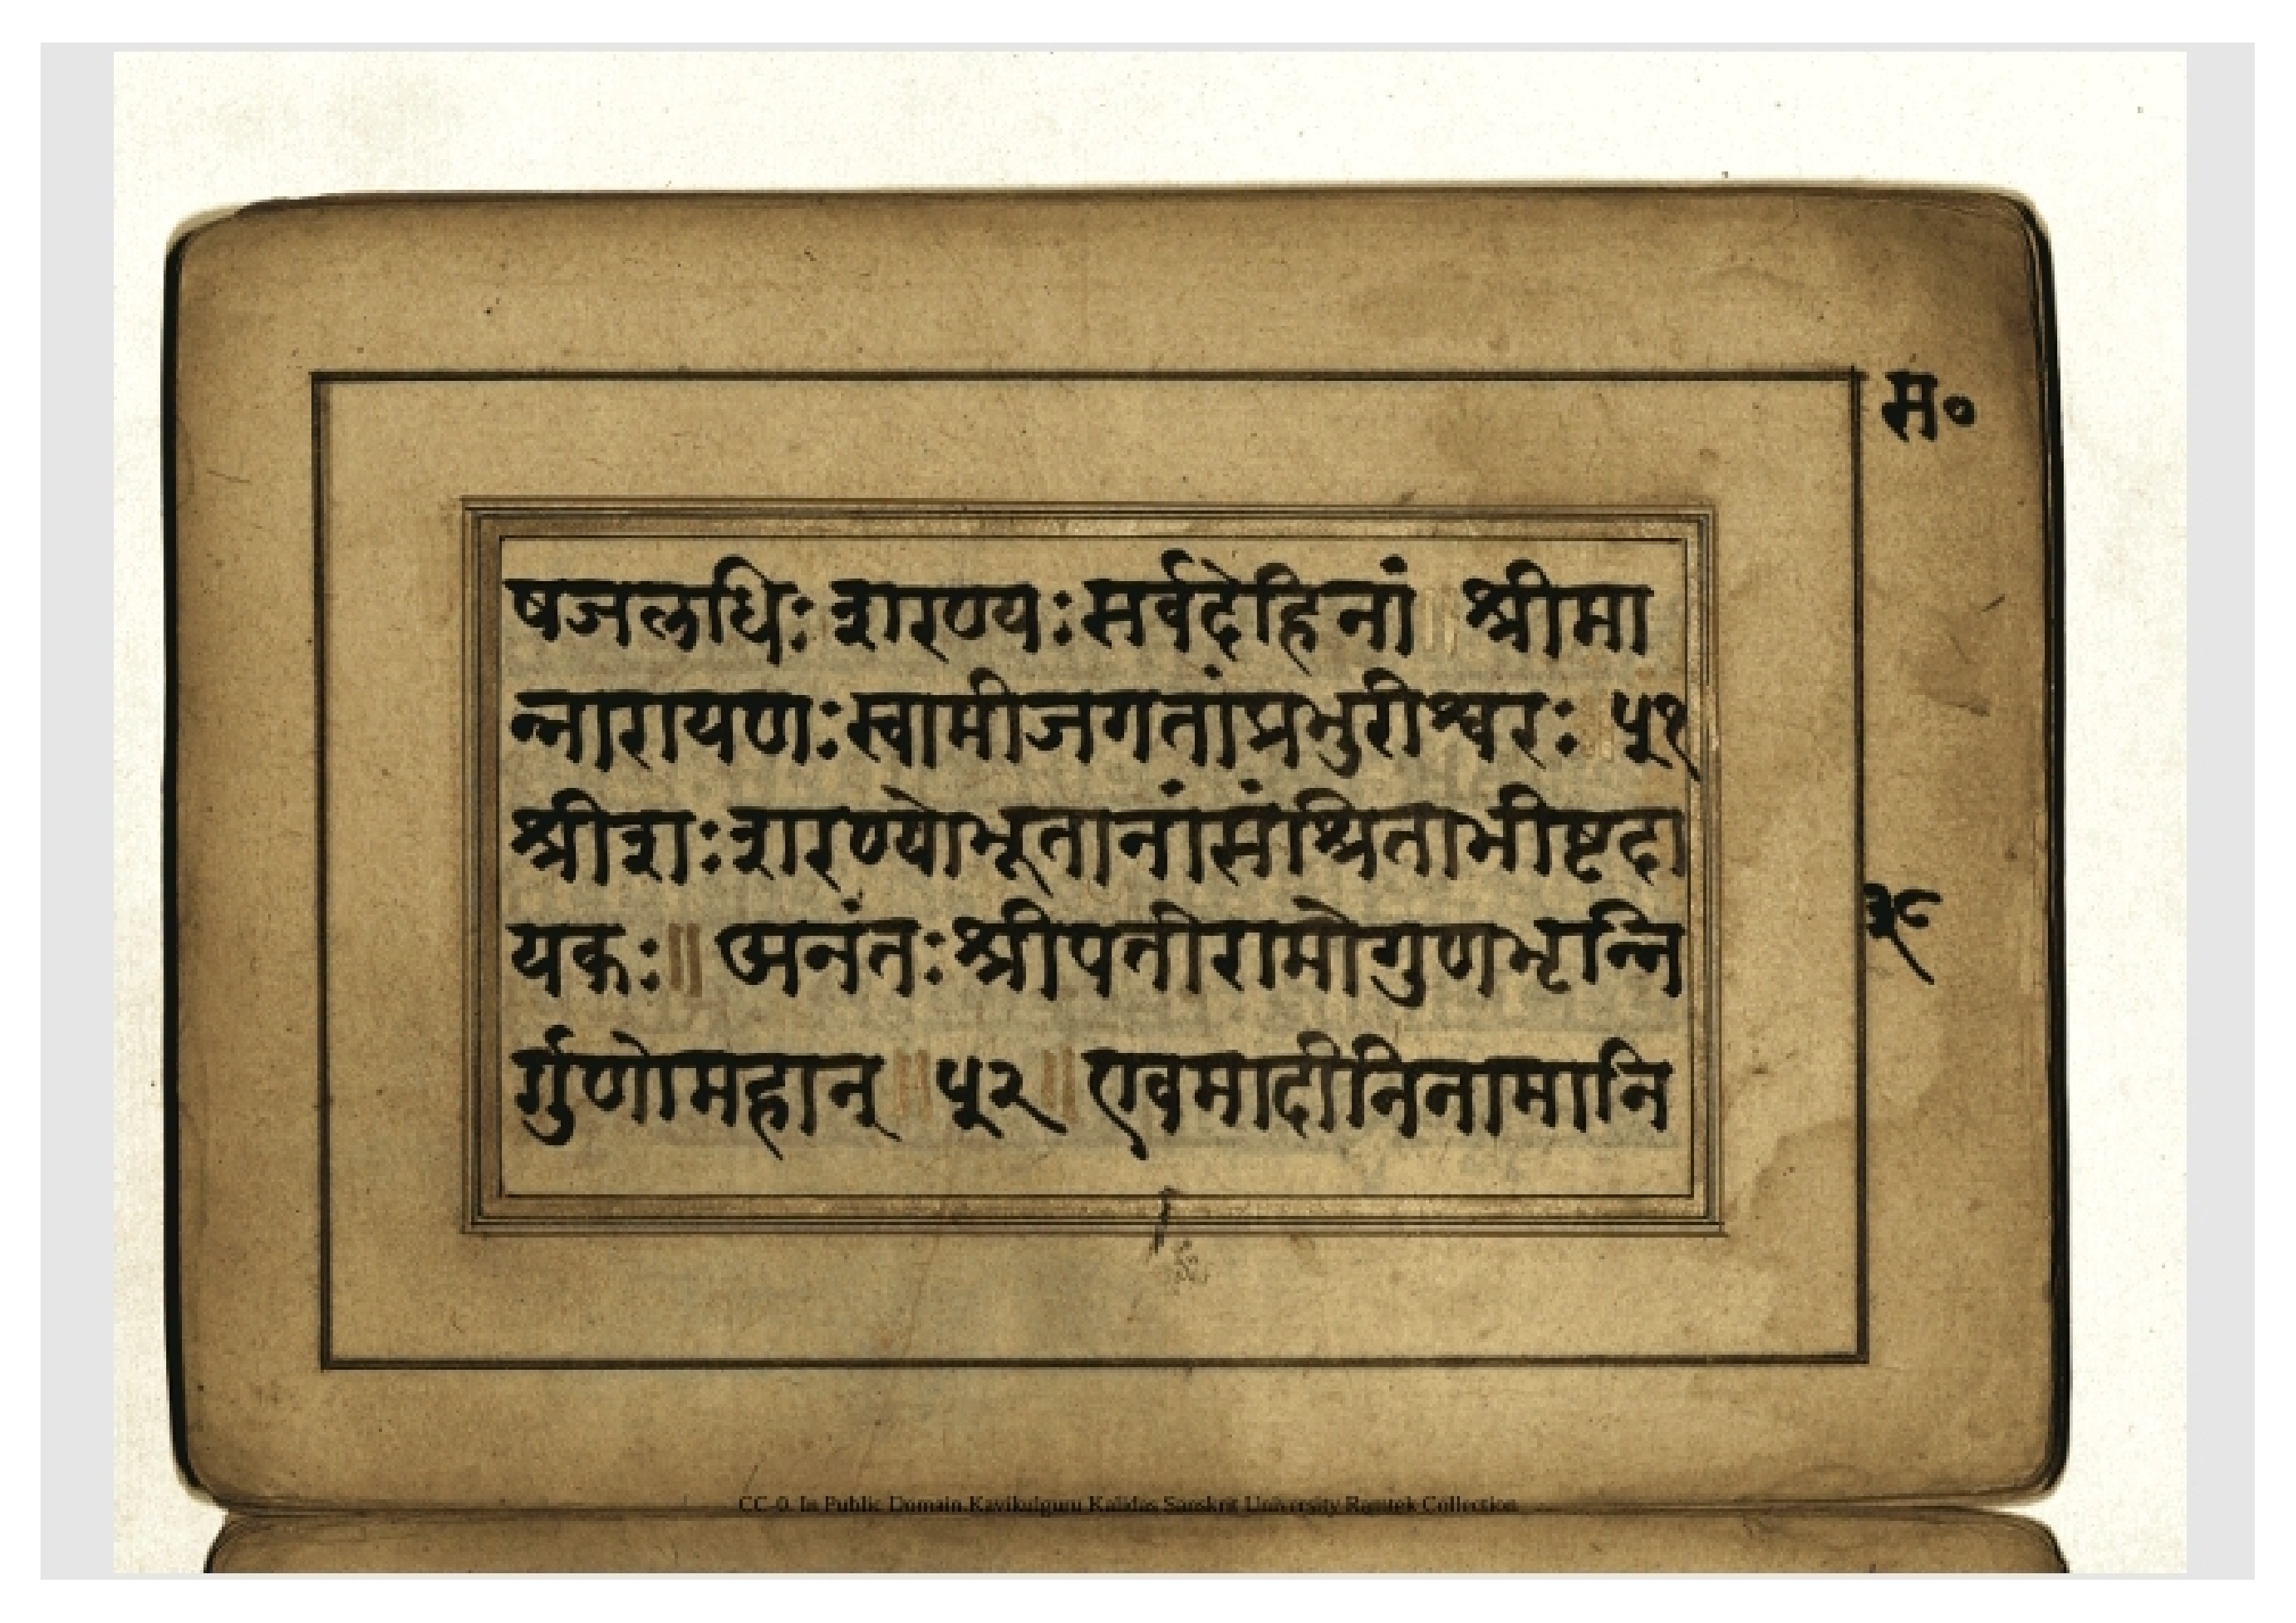 स०
षजलधिः शरण्यः सर्वदेहिनां ॥ श्रीमा
न्नारायणः स्वामीजगतांप्रभुरीश्वरः ॥ ५१
श्रीशः शरण्योभूतानांसंश्रिताभीष्टदा
यकः ॥ अनंतः श्रीपतीरामोगुणभृन्नि
र्गुणोमहान् ॥ ५२ ॥ एवमादीनिनामानि
CC-0. In Public Domain.Kavikulguru Kalidas Sanskrit University Ramtek Collection